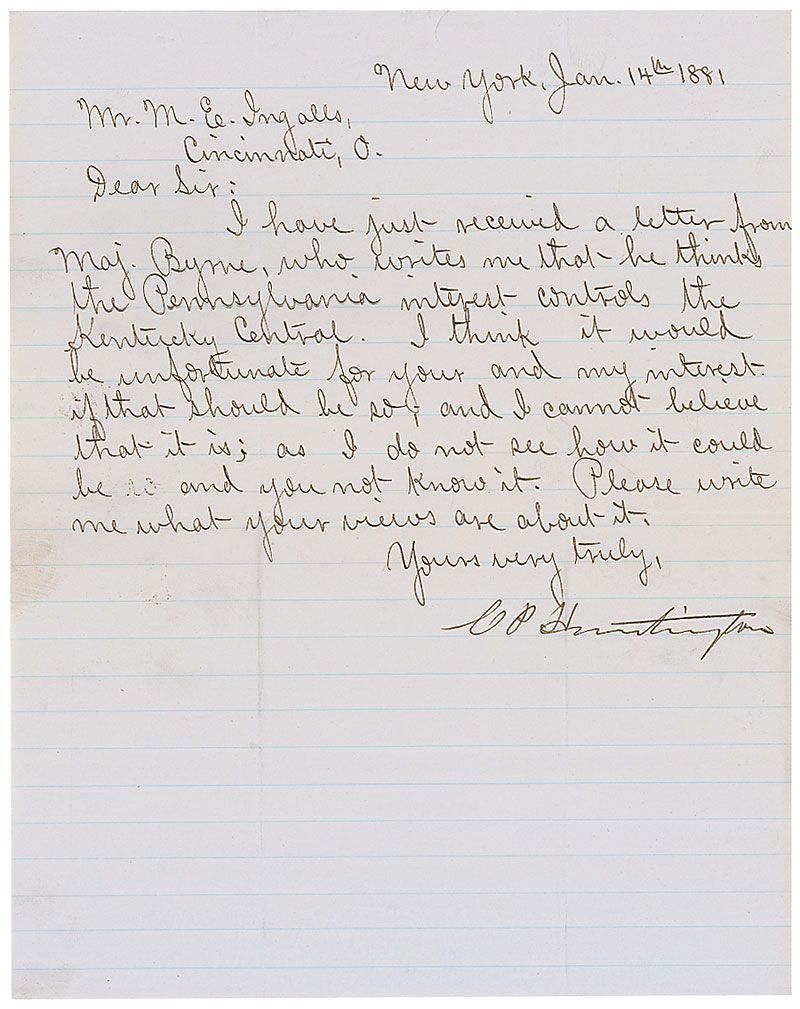 New York, Jan. 14th 1881
Mr. M. E. Ingalls,
Cincinnati, O.
Dear Sir:
I have just received a letter from
Maj. Byrne, who writes me that he thinks
the Pennsylvania interest controls the
Kentucky Central. I think it would
be unfortunate for your and my interest
if that should be so, and I cannot believe
that it is; as I do not see how it could
be so and you not know it. Please write
me what your views are about it.
Yours very truly,
C P Huntington